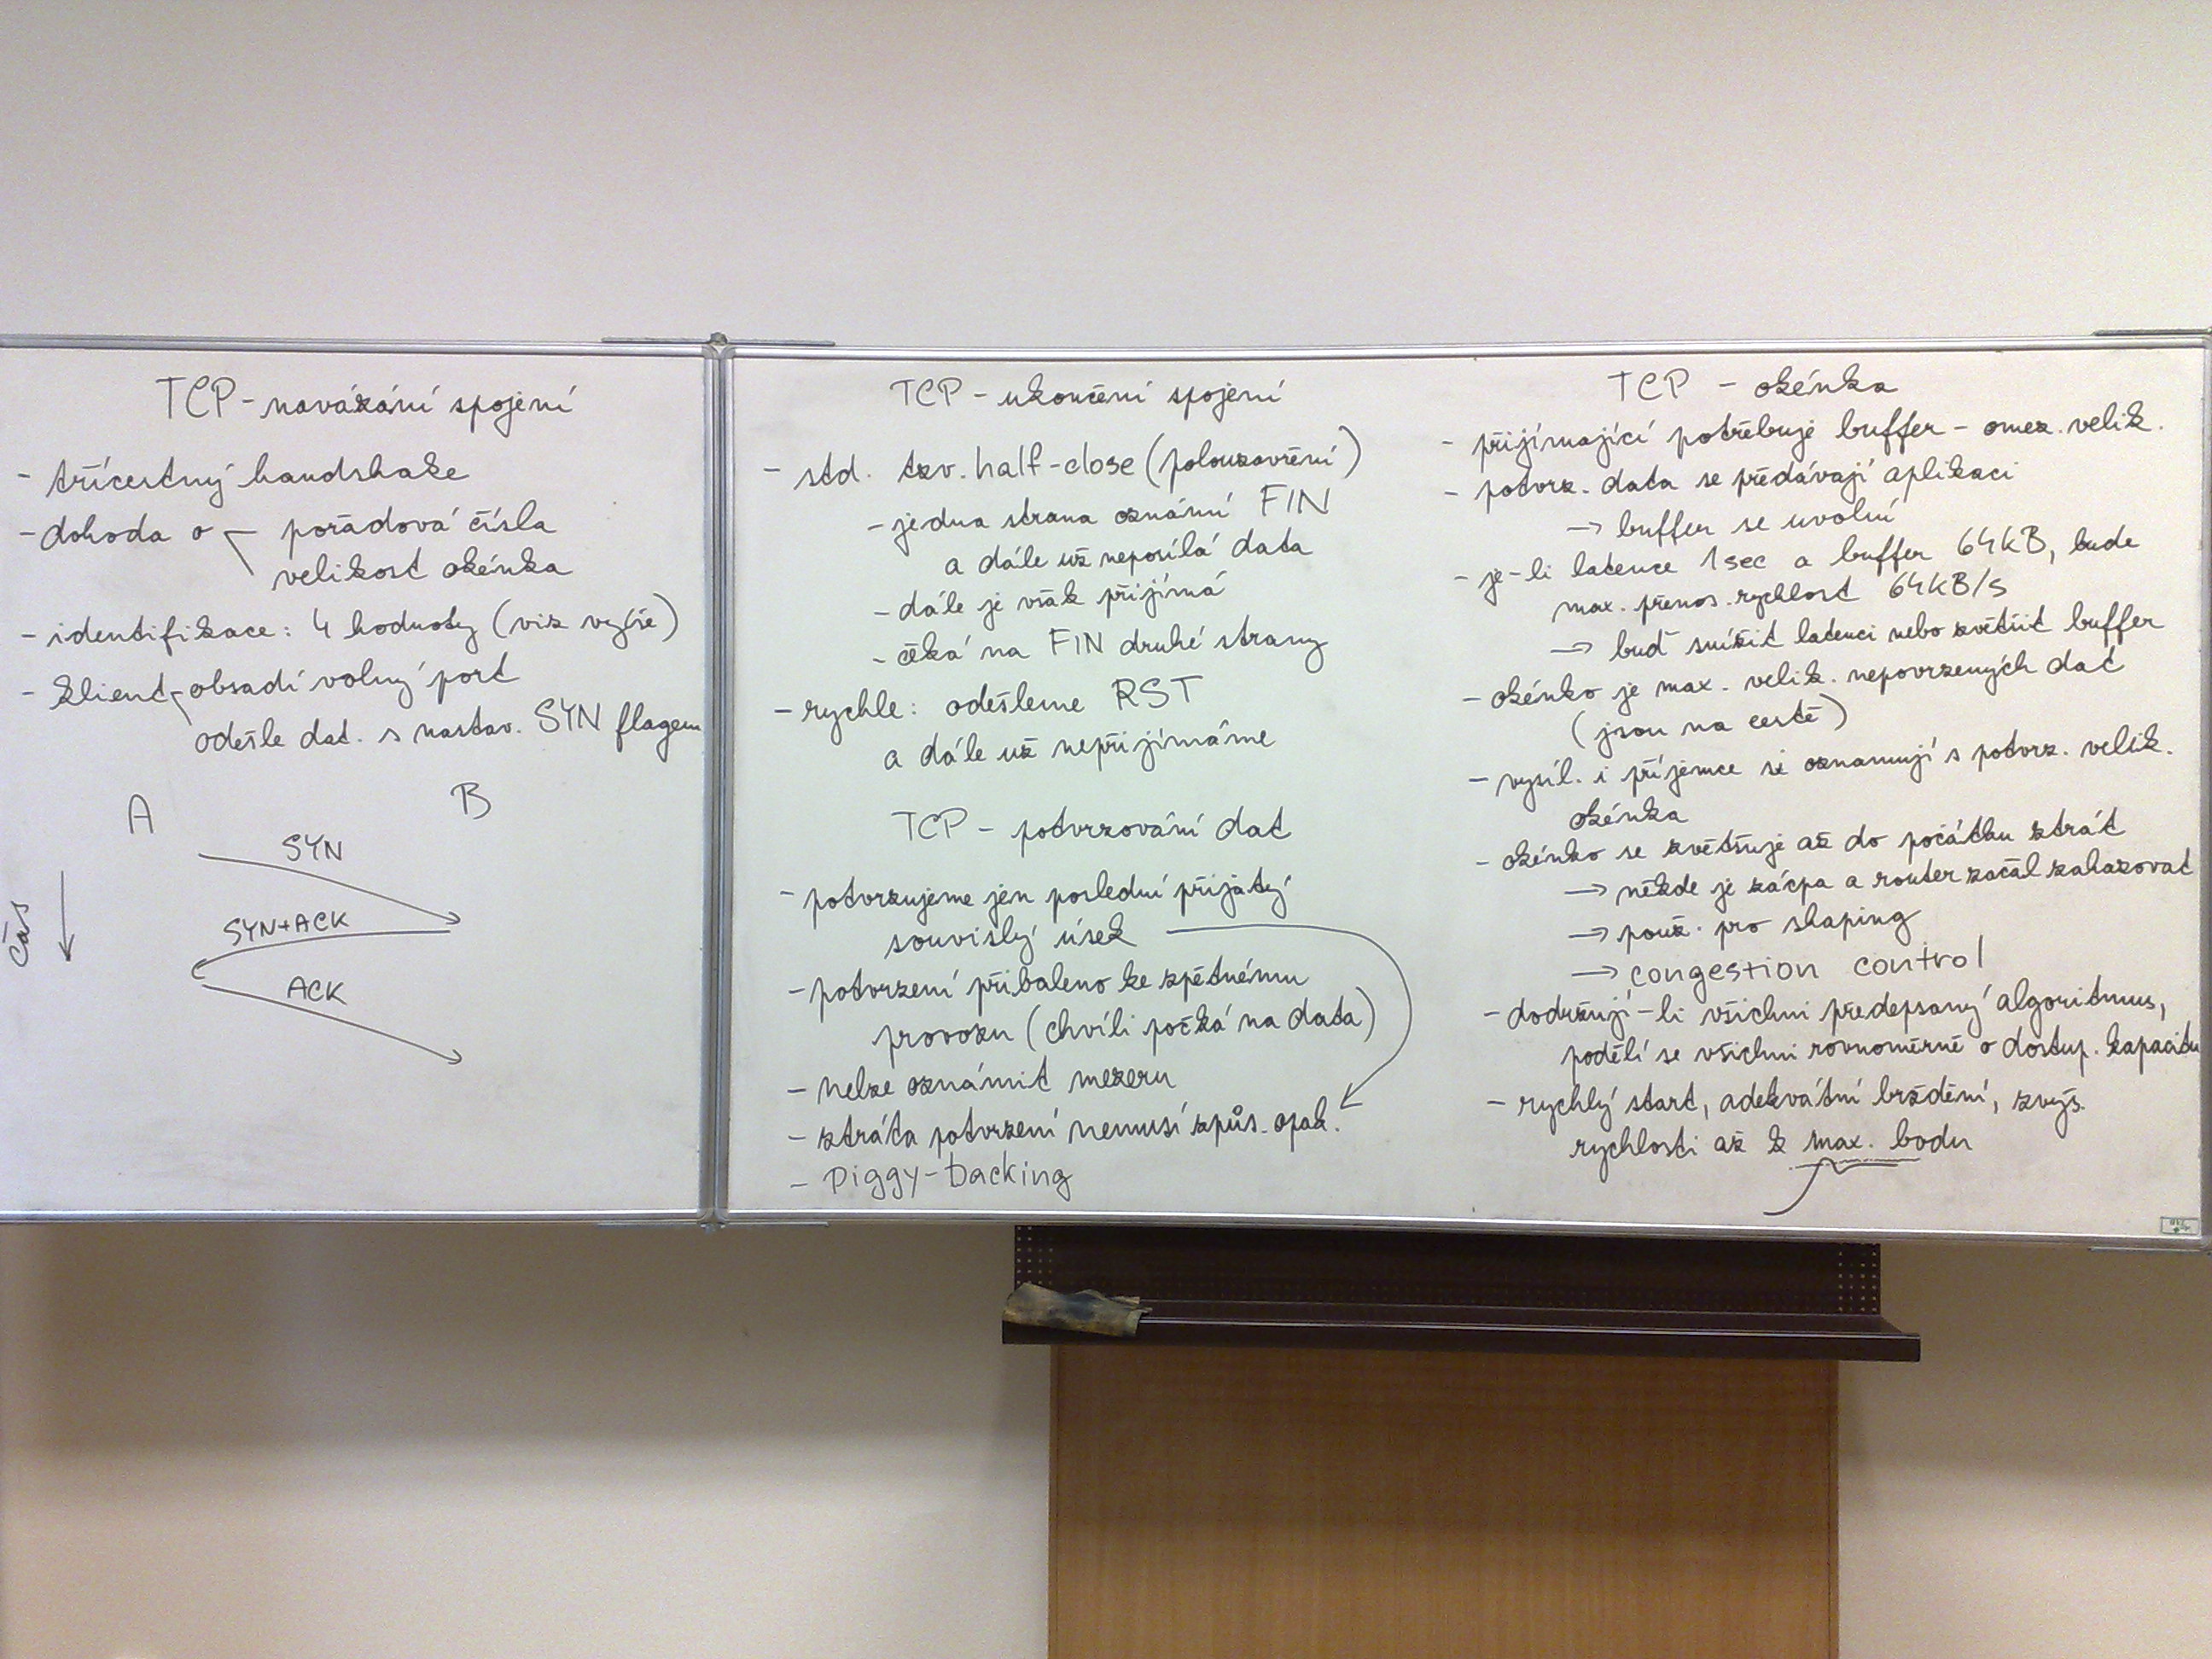 TCP - navázání spojení
- třícestný handshake
- dohoda o - pořadová čísla
velikost okénka
- identifikace: 4 hodnoty (viz výše)
- klient - obsadí volný port
odešle dat. s nastav. SYN flagem
A B
SYN
SYN+ACK
ACK
čas
TCP - ukončení spojení
- std. tzv. half-close (polouzavření)
- jedna strana oznámí FIN
a dále už neposílá data
- dále je však přijímá
- čeká na FIN druhé strany
- rychle: odešleme RST
a dále už nepřijímáme
TCP - potvrzování dat
- potvrzujeme jen poslední přijatý
souvislý úsek
- potvrzení přibaleno ke zpětnému
provozu (chvíli počká na data)
- nelze oznámit mezeru
- ztráta potvrzení nemusí způs. opak.
- Piggy-backing
TCP - okénka
- přijímající potřebuje buffer - omez. velik.
- potvrz. data se předávají aplikaci
→ buffer se uvolní
- je-li latence 1sec a buffer 64kB, bude
max. přenos. rychlost 64kB/s
→ buď snížit latenci nebo zvětšit buffer
- okénko je max. velik. nepovrzených dat
(jsou na cestě)
- vysíl. i příjemce si oznamují s potvrz. velik.
okénka
- okénko se zvětšuje až do počátku ztrát
→ někde je zácpa a router začal zahazovat
→ použ. pro shaping
→ congestion control
- dodržují-li všichni předepsaný algoritmus,
podělí se všichni rovnoměrně o dostup. kapacitu
- rychlý start, adekvátní brždění, zvýš.
rychlosti až k max. bodu